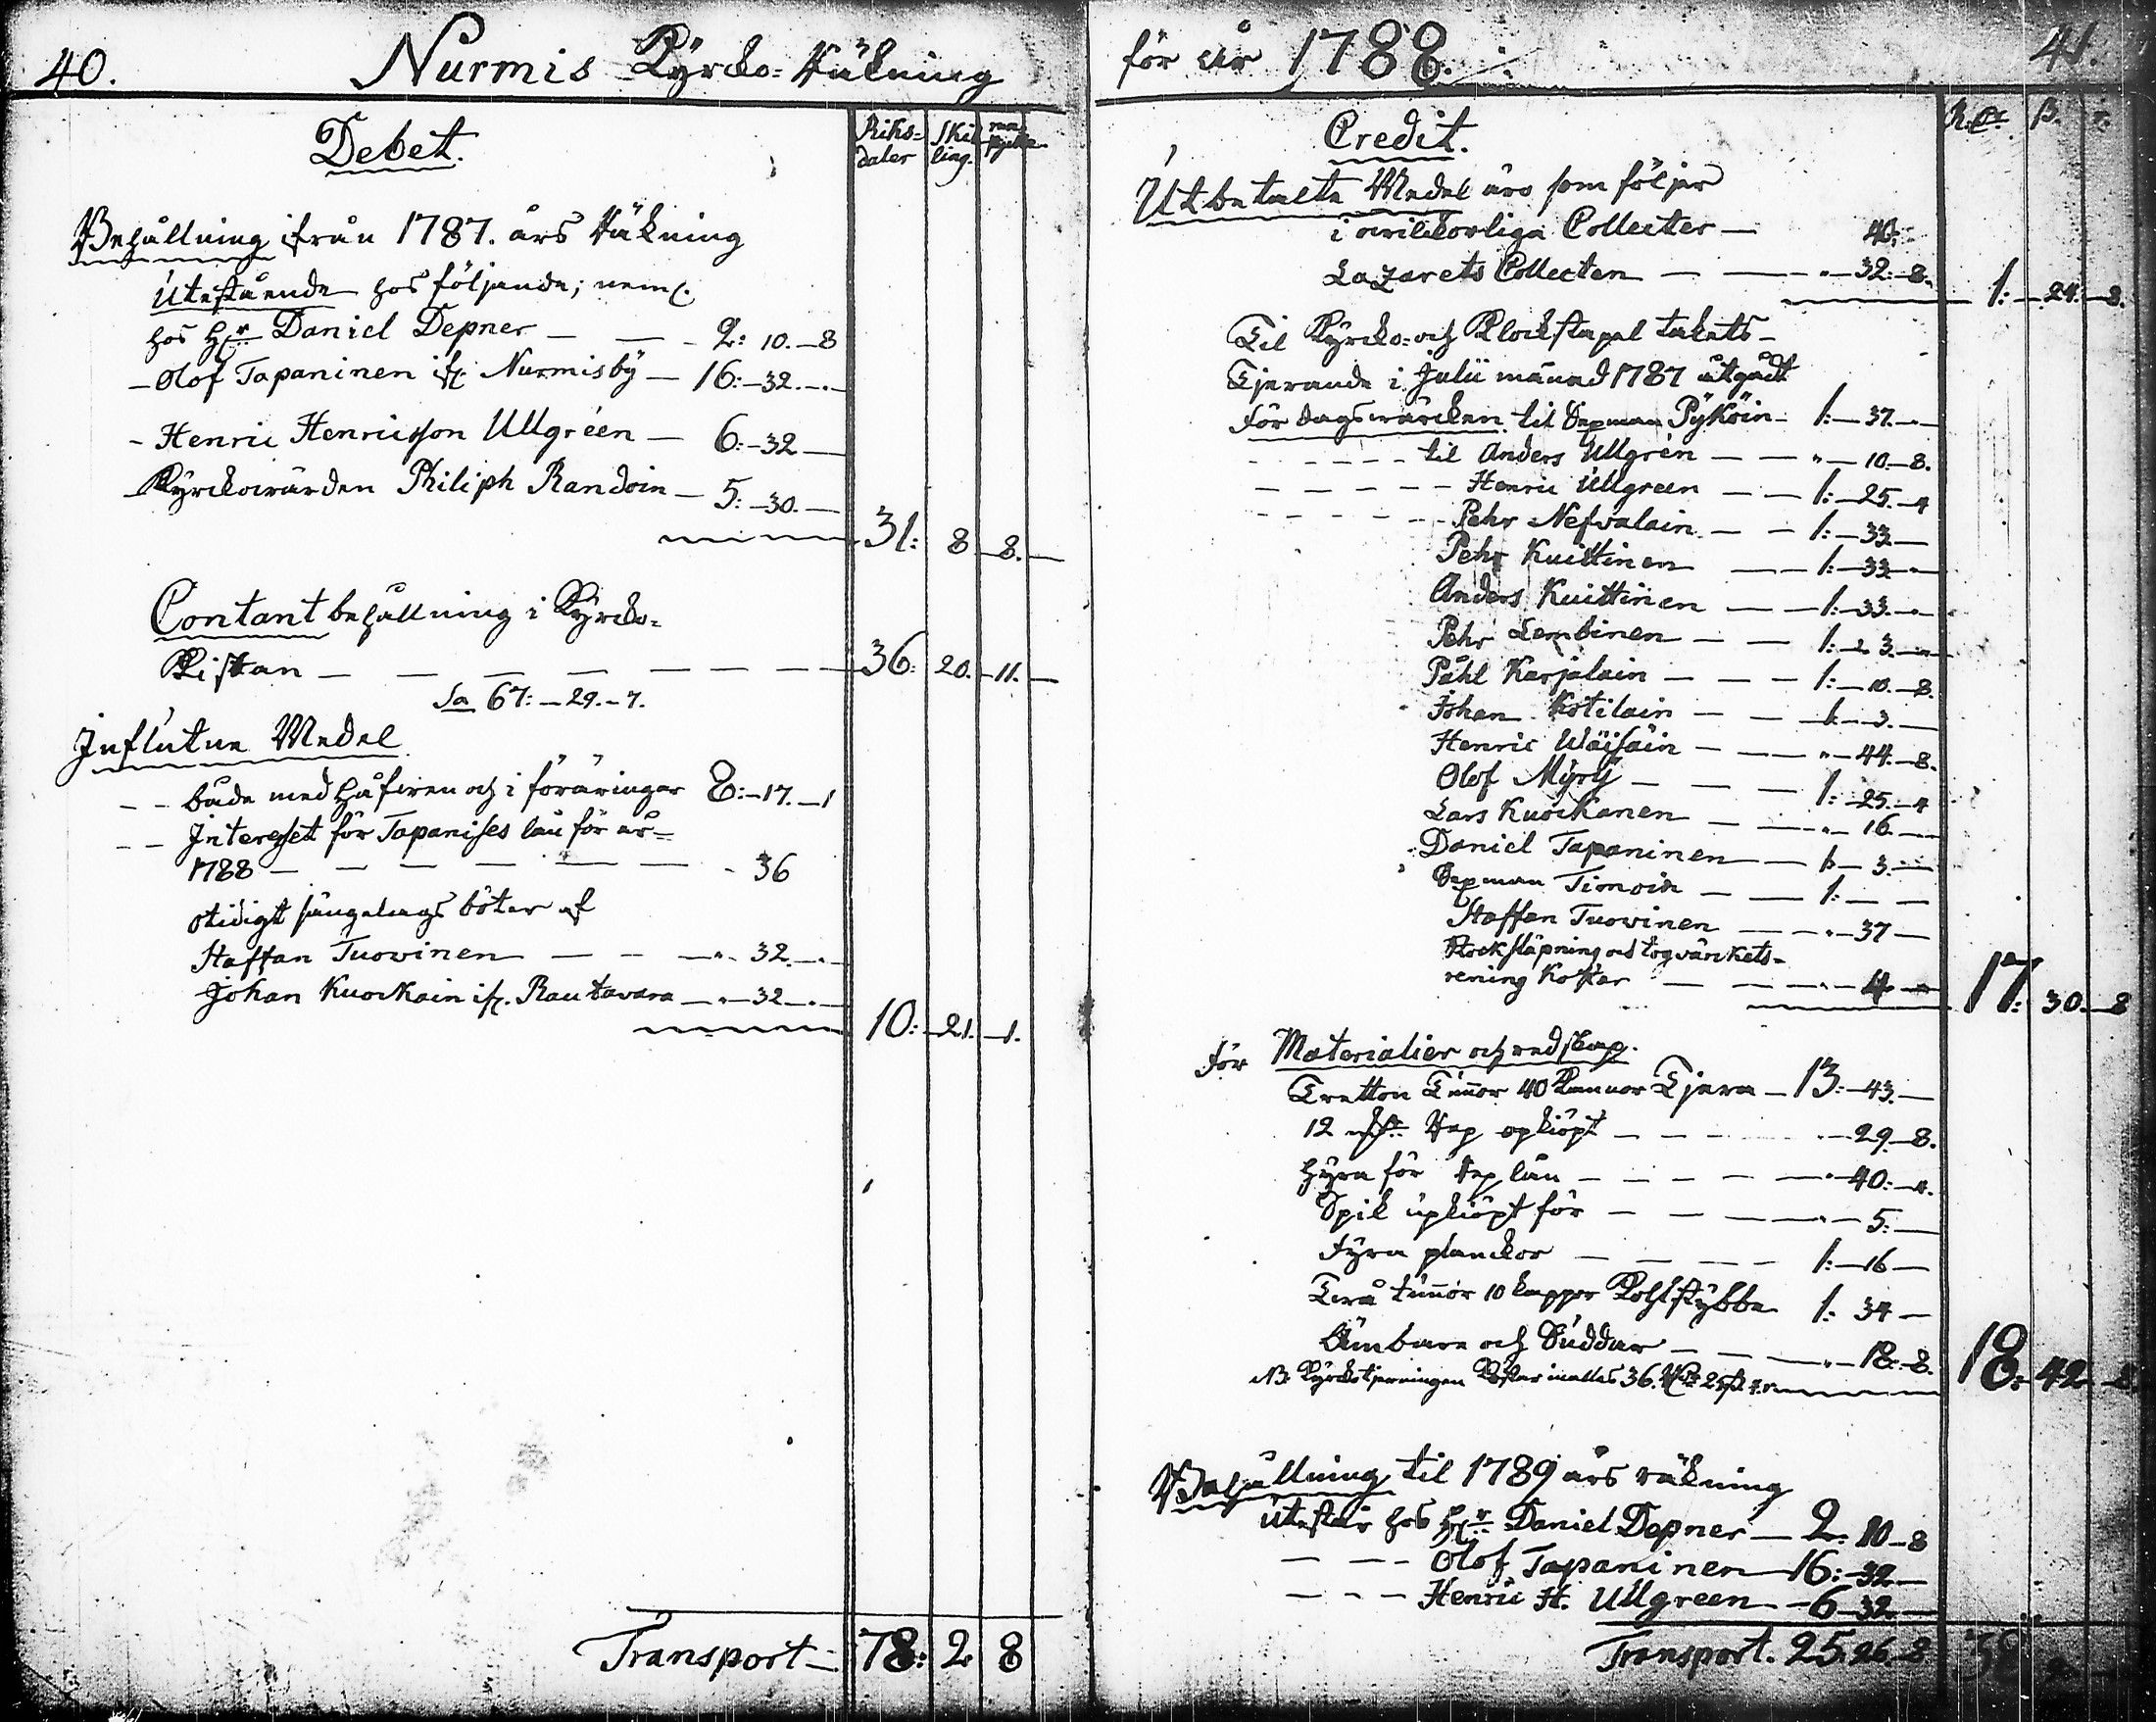 40.
Nurmis Kÿrcko-Räkning
Debet.
Riks= daler
Skil ling.
Behållning ifrån 1787. års Räkning
Utestående hos följande; neml.
hos Hr Daniel Depner — — 2: 10.—8
— Olof Tapaninen ifr. Nurmisbÿ — 16:—32.—
- Henric Henricsson Ullgréen — 6:—32 —
Kÿrckowärden Philiph Randoin — 5:—30.—
31: 8 — 8. —
Contant behållning i Kÿrcko=
Kistan — — — — — — — 36: 20.—11. —
Sa 67:—29.—7.
Influtne Medel
- - både med Håfwen och i föräringar 8:—17.—1
- - Interesset för Tapanises lån för år=
1788 — — — — — - 36
otidigt sängelags böter af
Staffan Tuovinen — - —„- 32.—
Johan Kuorkain ifr. Rautavara —„—32—„—
10:—21.—1.
Transport — 78: 2 8
för år 1788.
41.
Credit.
R:dr ß. r.
Utbetalte Medel äro som följer
i owilckorliga Collecter — 40:
Lazarets Collecten — — „—32:—8.
1:—24.—8.
Til Kÿrcko- och Klockstapel takets-
Tjerande i Julii månad 1787 åtgådt
För dagswärcken til Sexman Pÿköin - 1:—37.—
- - - - - til Anders Ullgrén — — „—10.—8.
- - - - - Henric Ullgreen — — 1:—25.—4
- - - - - Pehr Nefvalain — - 1:—33—
Pehr Kuittinen — — 1:—33—
Anders Kuittinen — — 1:—33.—
Pehr Lembinen — — 1:—3.—
Påhl Karjalain — — — 1:—10.—8.
Johan Kotilain — — 1:—3.—
Henric Wäisäin — — „—44.—8.
Olof Mÿrÿ — — — 1:—25.—4
Lars Kuorkanen — — „—16.—
Daniel Tapaninen — 1:—3—
Sexman Timoin — — 1:— —
Staffan Tuovinen — — „—37 —
Stocksläpning och togvärckets-
rening kostar — — — „— 4 —
17: 30.—8
För Materialier och redskap.
Tretton Tunnor 40 Kannor Tjera — 13:—43.—
12 Rep opköpt — — — „—29—8.
Hÿra för Rep lån — — — — „—40:—4.
Spik upköpt för — — — „—5:—
Fÿra planckor — — — — 1:—16 —
Två tunnor 10 kappor Kohlstÿbbe 1: 34 —
Ämbare och Suddar — — — „—18:—8.
NB. Kÿrcktjerningen Kostar inalles 36. Rdr 25 ß. 4 r
18:—42—8.
Behållning til 1789 års räkning
Utestår hos Hr Daniel Depner — 2: 10—8
— — - Olof Tapaninen — 16:—32—
— - - Henric H. Ullgreen — 6—32—
Transport. 25. 26. 8